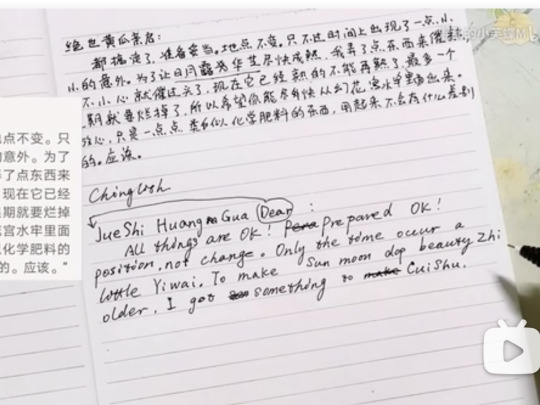 绝世黄瓜亲启:
都搞定了,准备妥当。地点不变。只不过时间上出现了一点小
小的意外。为了让日月露华芝尽快成熟,我弄了点东西来催熟,
不小心就催过头了,现在它已经熟的不能再熟了,最多一个
期就要烂掉了,所以希望你能尽快从幻花宫水牢里面出来。
放心,只是一点点类似化学肥料的东西,用起来不会有什么差别
的。应该。
点不变。只
意外。为了
了点东西来
现在它已经
期就要烂掉
宫水牢里面
化学肥料的
的。应该。”
Chinglish
JueShi Huang Gua Dear:
All things are OK! Prepared OK!
position, not change. Only the time occur a
little Yiwai. To make sun moon dop beauty Zhi
older, I got something to CuiShu.